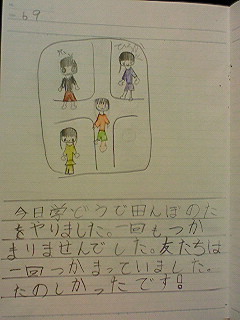 -69
今日学どうで田んぼのた
をやりました。一回もつか
まりませんでした。友だちは
一回つかまっていました。
たのしかったです!